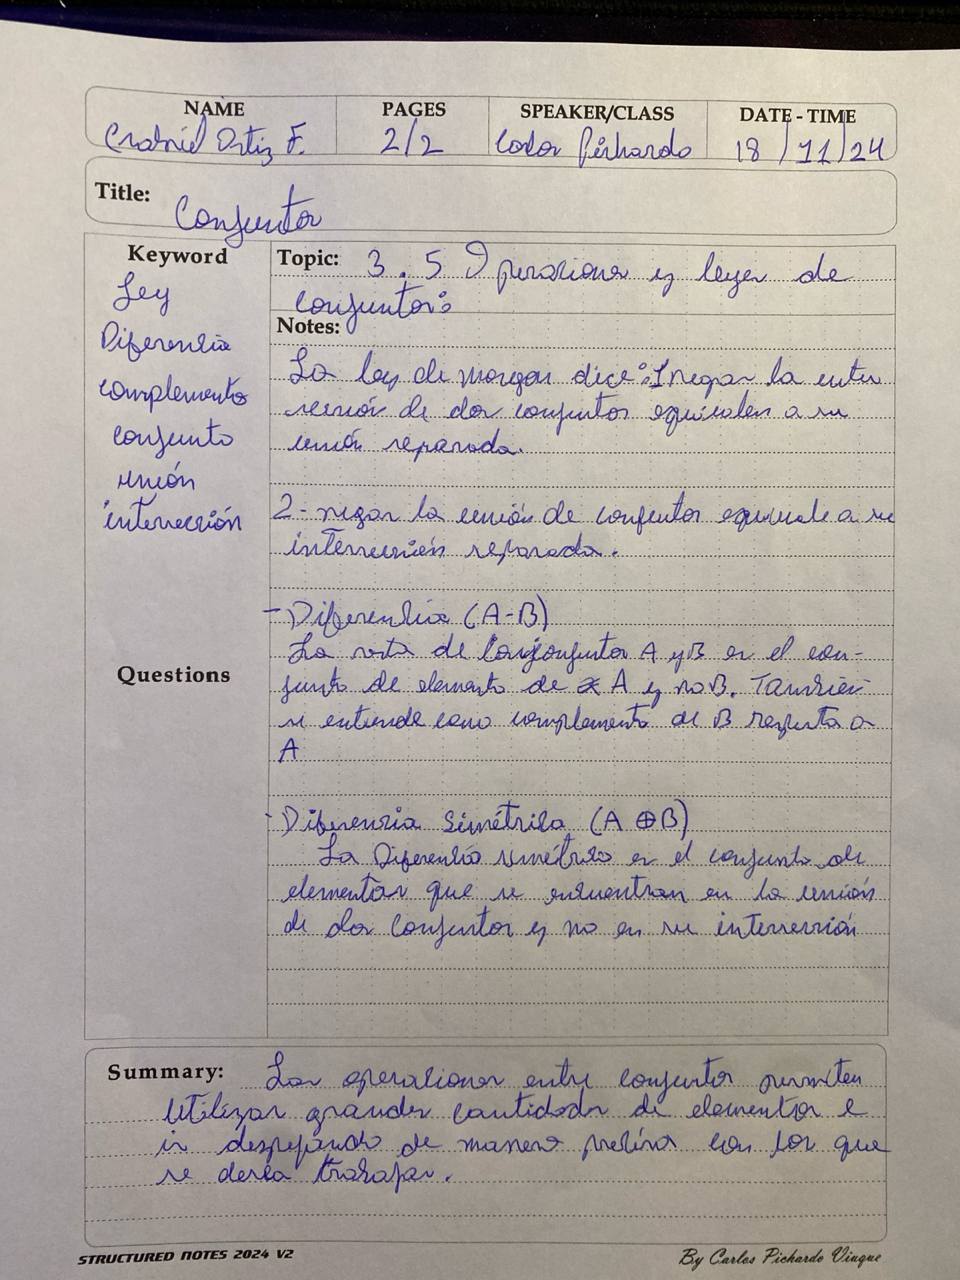 NAME PAGES SPEAKER/CLASS DATE - TIME
Gabriel Ortiz F. 2/2 Carlos Pichardo 18/11/24
Title: Conjuntos
Keyword
Ley
Diferencia
complemento
conjunto
unión
intersección
Questions
Topic: 3.5 Operaciones y leyes de
conjuntos:
Notes:
La ley de morgan dice: 1 negar la inter
sección de dos conjuntos equivalen a su
unión separada.
2- negar la unión de conjuntos equivale a su
intersección separada.
- Diferencia (A-B)
La resta de conjuntos A y B es el con-
junto de elemento de A y no B. Tambien
se entiende como complemento de B respecto a
A
- Diferencia Simétrica (A ⊕ B)
La Diferencia simétrica es el conjunto de
elementos que se encuentran en la unión
de dos conjuntos y no en su intersección
Summary: Las operaciones entre conjuntos permiten
utilizar grandes cantidades de elementos e
ir despejando de manera precisa con los que
se desea trabajar.
STRUCTURED NOTES 2024 V2 By Carlos Pichardo Viuque